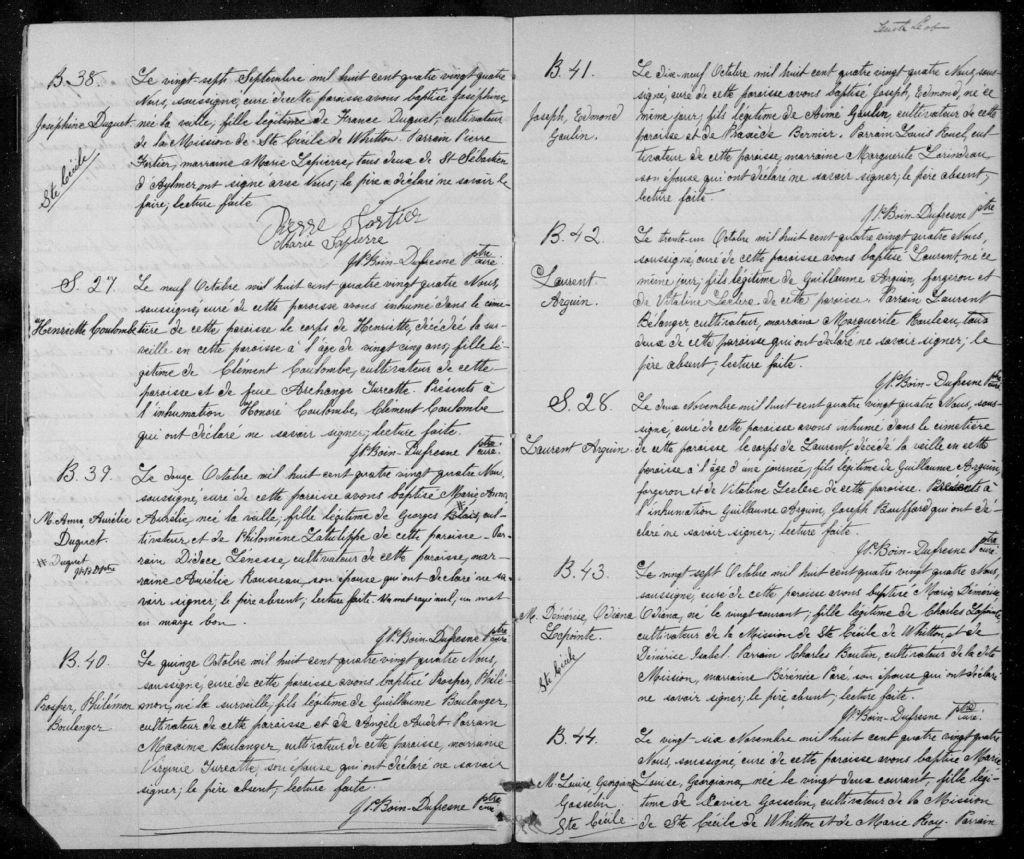 B. 38.
Joséphine Duguet
Ste Cécile
Le vingt-sept Septembre mil huit cent quatre vingt quatre
Nous, soussigné, curé de cette paroisse avons baptisé Joséphine,
née la veille, fille légitime de France Duguet, cultivateur
de la Mission de Ste Cécile de Whitton. Parrain Pierre
Fortier, marraine Marie Lapierre, tous deux de St Sébastien
d'Aylmer, ont signé avec Nous; le père a déclaré ne savoir le
faire; lecture faite.
Pierre Fortier
Marie Lapierre
Boin-Dufresne Ptre curé.
S. 27.
Henriette Coulombe
Le neuf Octobre mil huit cent quatre vingt quatre Nous,
soussigné, curé de cette paroisse avons inhumé dans le cime-
tière de cette paroisse le corps de Henriette, décédée la sur-
veille en cette paroisse à l'âge de vingt cinq ans, fille lé-
gitime de Clément Coulombe, cultivateur de cette
paroisse et de feue Archange Turcotte. Présents à
l'inhumation Honoré Coulombe, Clément Coulombe
qui ont déclaré ne savoir signer; lecture faite.
Boin-Dufresne Ptre curé.
B. 39.
M. Anna Aurélie
Duguet.
Duguet
Le douze Octobre mil huit cent quatre vingt quatre Nous,
soussigné, curé de cette paroisse avons baptisé Marie Anna,
Aurélie née la veille, fille légitime de Georges Blais, cul-
tivateur et de Philomène Latulippe de cette paroisse. Par-
rain Didace Lénesse, cultivateur de cette paroisse, mar-
raine Aurélie Rousseau, son épouse qui ont déclaré ne sa-
voir signer; le père absent; lecture faite. Un mot rayé nul, un mot
en marge bon.
Boin-Dufresne Ptre curé
B. 40.
Prosper, Philémon
Boulanger
Le quinze Octobre mil huit cent quatre vingt quatre Nous,
soussigné, curé de cette paroisse avons baptisé Prosper, Philé-
mon, né la surveille, fils légitime de Guillaume Boulanger,
cultivateur de cette paroisse et de Angèle Audet. Parrain
Maxime Boulanger, cultivateur de cette paroisse, marraine
Virginie Turcotte, son épouse qui ont déclaré ne savoir
signer; le père absent, lecture faite.
Boin-Dufresne Ptre curé
B. 41.
Joseph, Edmond
Gaulin.
Le dix-neuf Octobre mil huit cent quatre vingt quatre Nous, sous-
signé, curé de cette paroisse avons baptisé Joseph, Edmond, né ce
même jour; fils légitime de Aimé Gaulin, cultivateur de cette
paroisse et de Praxède Bernier. Parrain Louis Ruel, cul-
tivateur de cette paroisse, marraine Marguerite Larindeau
son épouse qui ont déclaré ne savoir signer; le père absent;
lecture faite.
Boin-Dufresne Ptre
B. 42.
Laurent
Arguin.
Le trente-un Octobre mil huit cent quatre vingt quatre Nous,
soussigné, curé de cette paroisse avons baptisé Laurent né ce
même jour; fils légitime de Guillaume Arguin, forgeron et
de Vitaline Leclerc de cette paroisse. Parrain Laurent
Bélanger cultivateur, marraine Marguerite Rouleau, tous
deux de cette paroisse qui ont déclaré ne savoir signer; le
père absent; lecture faite.
Boin-Dufresne Ptre curé
S. 28.
Laurent Arguin.
Le deux Novembre mil huit cent quatre vingt quatre Nous, sous-
signé, curé de cette paroisse avons inhumé dans le cimetière
de cette paroisse le corps de Laurent, décédé la veille en cette
paroisse à l'âge d'une journée; fils légitime de Guillaume Arguin,
forgeron et de Vitaline Leclerc de cette paroisse. Présents à
l'inhumation Guillaume Arguin, Joseph Bouffard qui ont dé-
claré ne savoir signer; lecture faite.
Boin-Dufresne Ptre curé.
B. 43.
M. Démérise, Odiana
Lapointe.
Ste Cécile
Le vingt sept Octobre mil huit cent quatre vingt quatre Nous,
soussigné, curé de cette paroisse avons baptisé Marie, Démérise
Odiana, née le vingt courant; fille légitime de Charles Lapointe,
cultivateur de la Mission de Ste Cécile de Whitton, et de
Démérise Isabel. Parrain Charles Boutin, cultivateur de la dite
Mission, marraine Bérénice Paré, son épouse qui ont déclaré
ne savoir signer; le père absent; lecture faite.
Boin-Dufresne Ptre curé.
B. 44.
M. Louise Georgiana
Gosselin.
Ste Cécile.
Le vingt six Novembre mil huit cent quatre vingt quatre
Nous, soussigné, curé de cette paroisse avons baptisé Marie
Louise, Georgiana, née le vingt deux courant, fille légi-
time de Xavier Gosselin, cultivateur de la Mission
de Ste Cécile de Whitton et de Marie Roy. Parrain